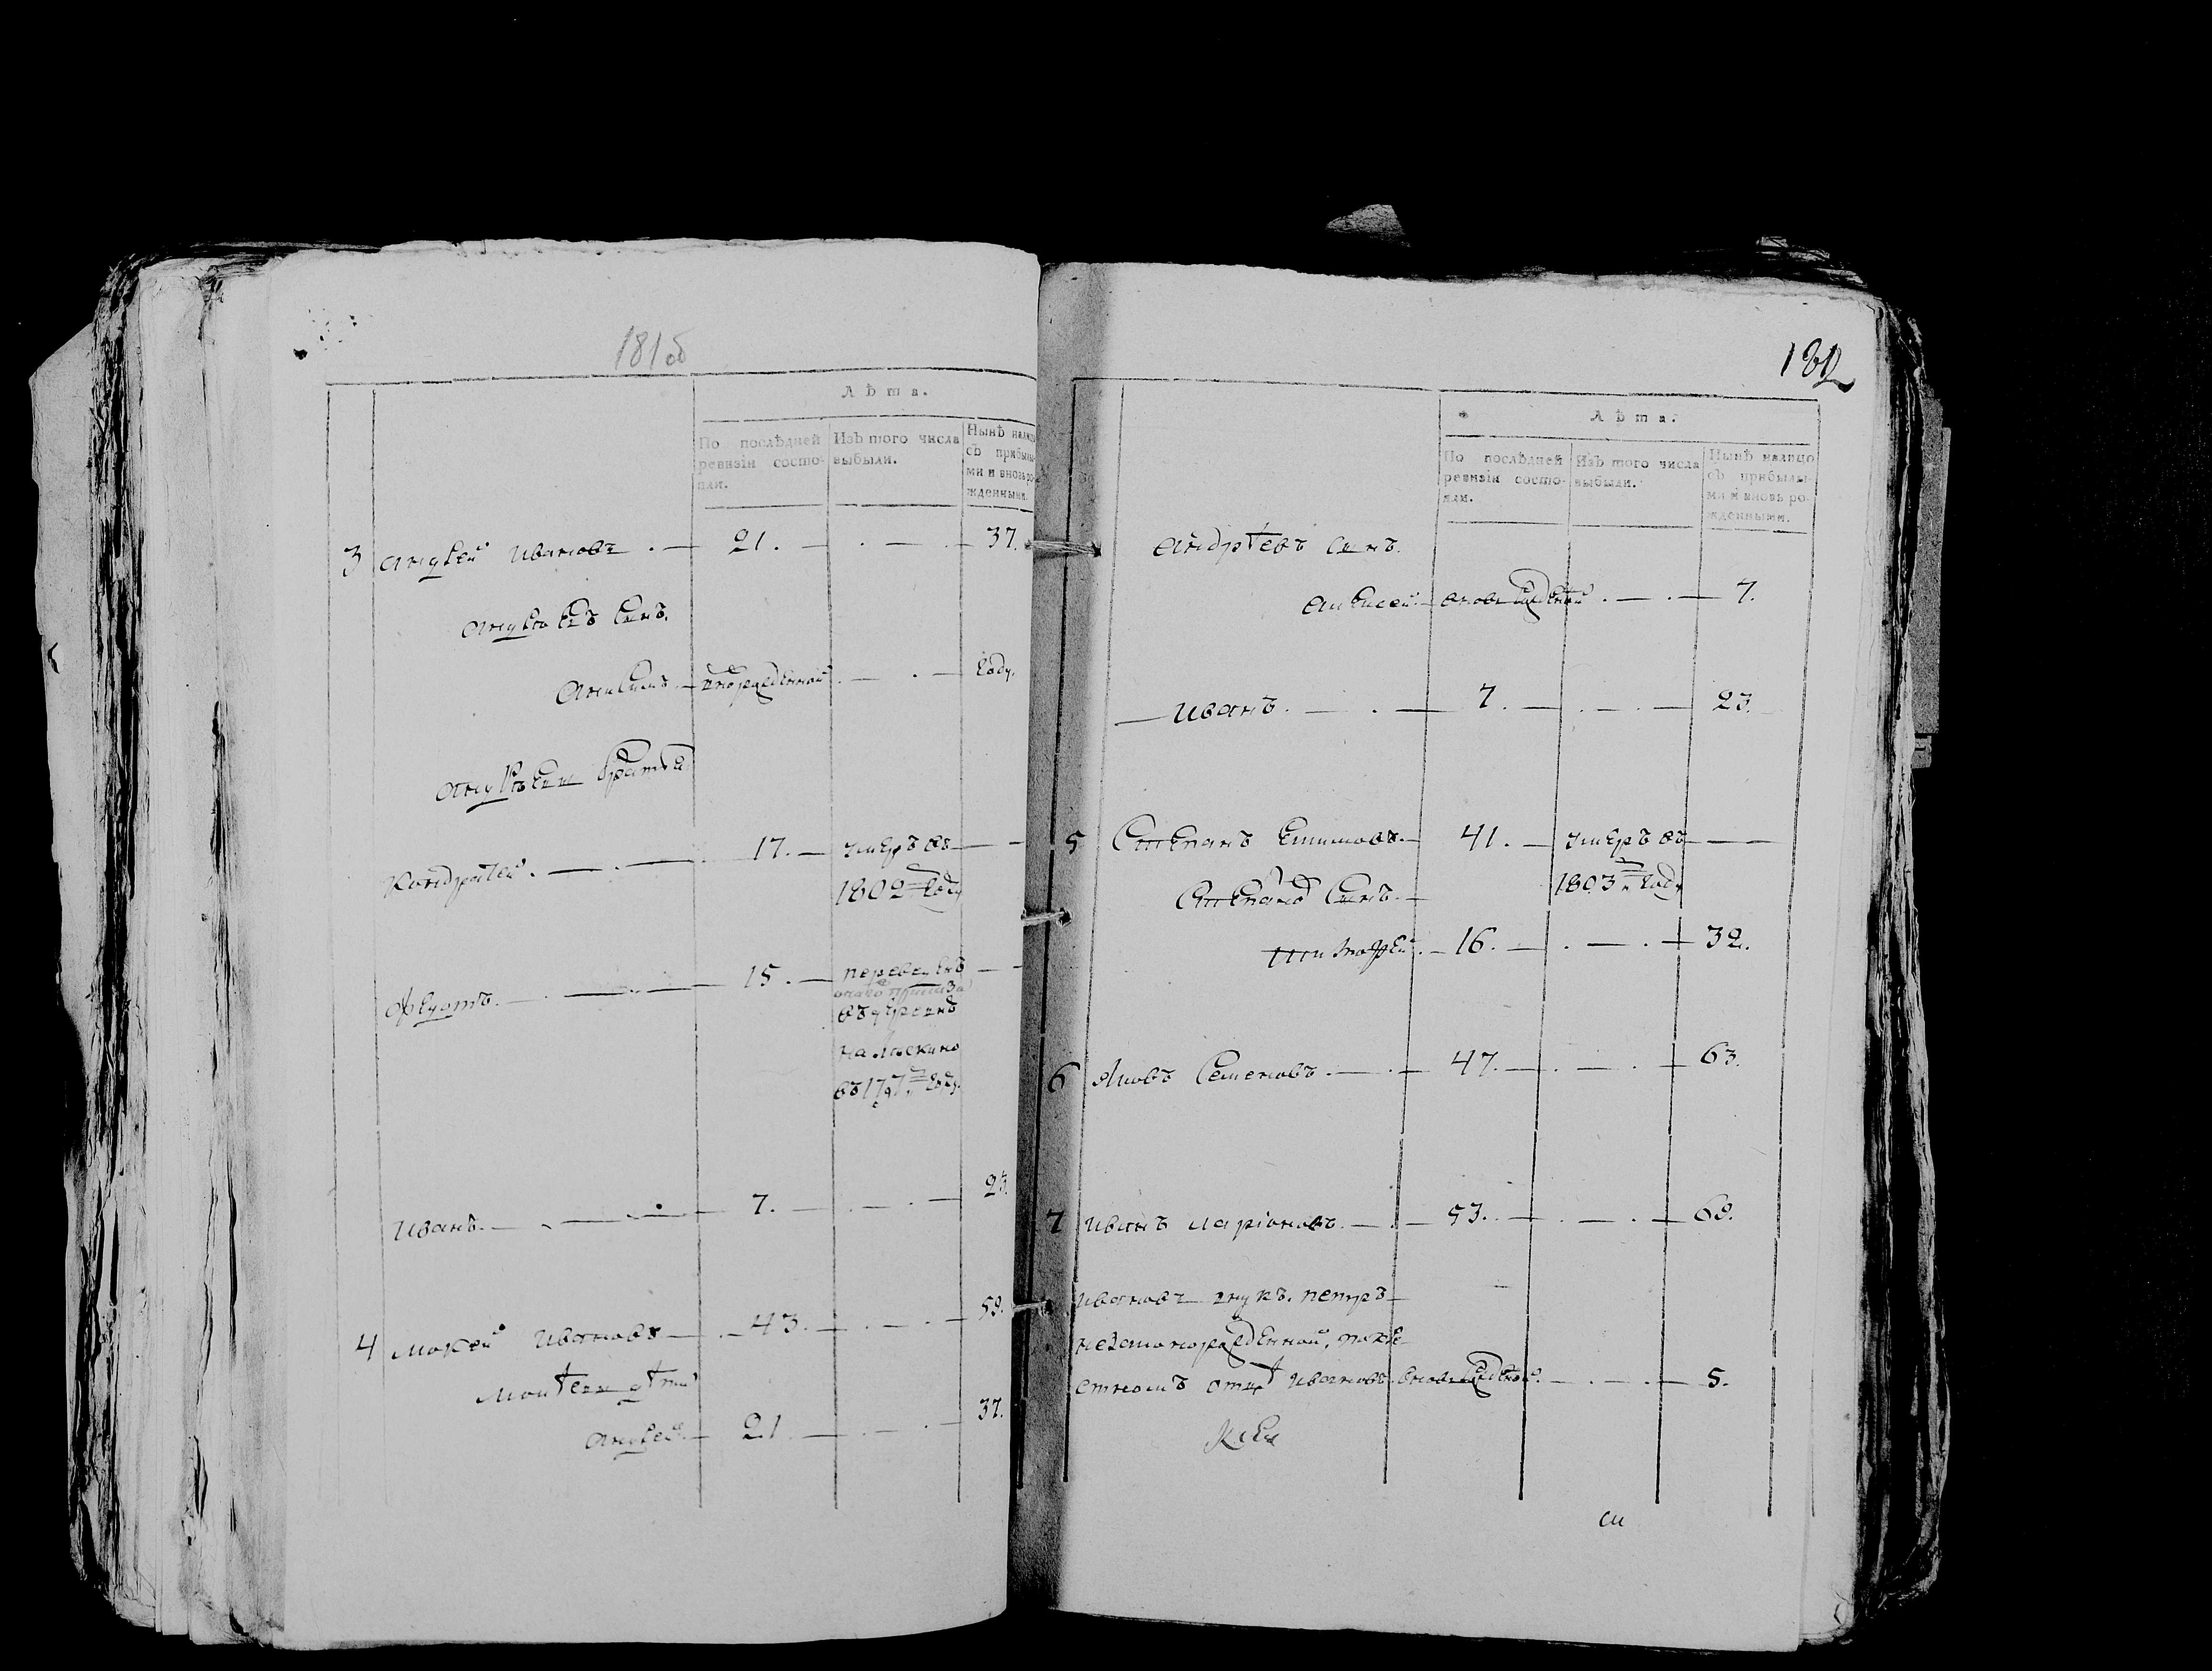 181об
Лѣта.
По послѣдней ревизіи состояли.
Изъ того числа выбыли.
Нынѣ налицо съ прибылыми и вновь рожденными.
3 Андрей Ивановъ 21. 37.
Андреевъ сынъ.
вновьрожденной году.
Андреевы братья
Кондратей. 17. умеръ въ
1802 году
Федотъ. 15. переведенъ
въ деревню
въ 1797 году.
Иванъ. 7. 23.
4 Мокей Ивановъ 43. 59.
Мокеевы дѣти
Андрей 21. 37.
182
Лѣта.
По послѣдней ревизіи состояли.
Изъ того числа выбыли.
Нынѣ налицо съ прибылыми и вновь рожденными.
Андрѣевъ сынъ.
вновь рожденной 7.
Иванъ. 7. 23.
5 Степанъ 41. умеръ въ
Степановъ сынъ. 1803 году
Тимофей. 16. 32.
6 Яковъ Семеновъ 47. 63.
7 Иванъ Ларіоновъ. 53. 69.
Ивановъ внукъ. Петръ
незаконорожденной,
отцѣ Ивановъ. вновь рожденной. 5.